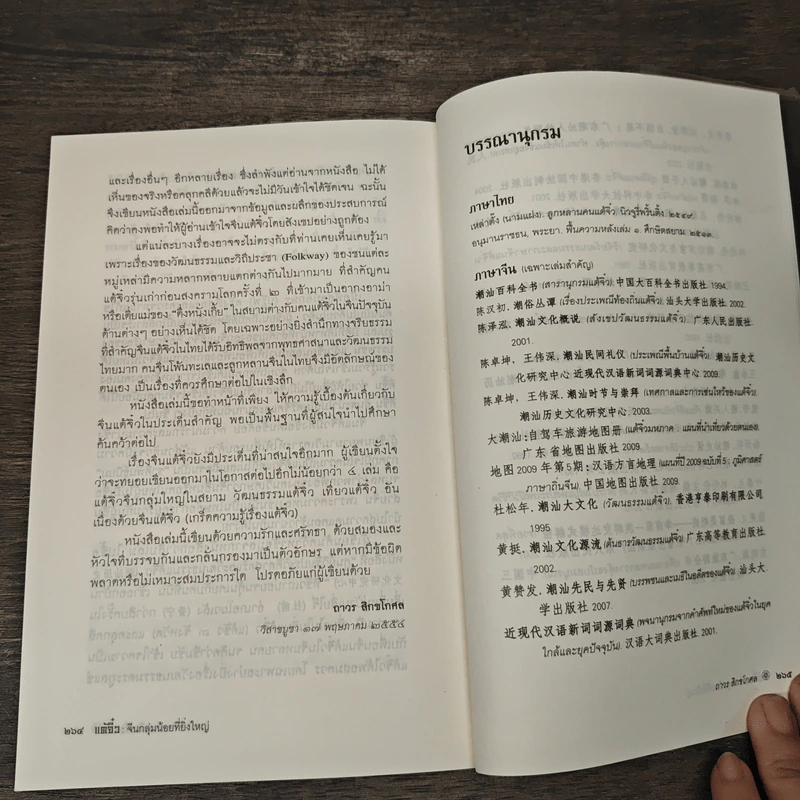 และเรื่องอื่นๆ อีกหลายเรื่อง ซึ่งลำพังแต่อ่านจากหนังสือ ไม่ได้
เห็นของจริงหรือคลุกคลีด้วยแล้วจะไม่มีวันเข้าใจได้ชัดเจน ฉะนั้น
จึงเขียนหนังสือเล่มนี้ออกมาจากข้อมูลและผลึกของประสบการณ์
คิดว่าคงพอทำให้ผู้อ่านเข้าใจจีนแต้จิ๋วโดยสังเขปอย่างถูกต้อง
แต่แน่ละบางเรื่องอาจจะไม่ตรงกับที่ท่านเคยเห็นเคยรู้มา
เพราะเรื่องของวัฒนธรรมและวิถีประชา (Folkway) ของชนแต่ละ
หมู่เหล่ามีความหลากหลายแตกต่างกันไปมากมาย ที่สำคัญคน
แต้จิ๋วรุ่นเก่าก่อนสงครามโลกครั้งที่ ๒ ที่เข้ามาเป็นอากงอาม่า
หรือเตี่ยแม่ของ “ตึ่งหนังเกี้ย” ในสยามต่างกับคนแต้จิ๋วในจีนปัจจุบัน
ด้านต่างๆ อย่างเห็นได้ชัด โดยเฉพาะอย่างยิ่งสำนึกทางจริยธรรม
ที่สำคัญจีนแต้จิ๋วในไทยได้รับอิทธิพลจากพุทธศาสนาและวัฒนธรรม
ไทยมาก คนจีนโพ้นทะเลและลูกหลานจีนในไทยจึงมีอัตลักษณ์ของ
ตนเอง เป็นเรื่องที่ควรศึกษาต่อไปในเชิงลึก
หนังสือเล่มนี้ขอทำหน้าที่เพียง ให้ความรู้เบื้องต้นเกี่ยวกับ
จีนแต้จิ๋วในประเด็นสำคัญ พอเป็นพื้นฐานที่ผู้สนใจนำไปศึกษา
ค้นคว้าต่อไป
เรื่องจีนแต้จิ๋วยังมีประเด็นที่น่าสนใจอีกมาก ผู้เขียนตั้งใจ
ว่าจะทยอยเขียนออกมาในโอกาสต่อไปอีกไม่น้อยกว่า ๔ เล่ม คือ
แต้จิ๋วจีนกลุ่มใหญ่ในสยาม วัฒนธรรมแต้จิ๋ว เที่ยวแต้จิ๋ว อัน
เนื่องด้วยจีนแต้จิ๋ว (เกร็ดความรู้เรื่องแต้จิ๋ว)
หนังสือเล่มนี้เขียนด้วยความรักและศรัทธา ด้วยสมองและ
หัวใจที่บรรจบกันและกลั่นกรองมาเป็นตัวอักษร แต่หากมีข้อผิด
พลาดหรือไม่เหมาะสมประการใด โปรดอภัยแก่ผู้เขียนด้วย
ถาวร สิกขโกศล
วิสาขบูชา ๑๗ พฤษภาคม ๒๕๕๔
๒๖๔ แต้จิ๋ว : จีนกลุ่มน้อยที่ยิ่งใหญ่
บรรณานุกรม
ภาษาไทย
เหล่าตั๊ง (นามแฝง). ลูกหลานคนแต้จิ๋ว. นิวจูรี่พริ้นติ้ง. ๒๕๔๙.
อนุมานราชธน, พระยา. ฟื้นความหลังเล่ม ๑. ศึกษิตสยาม. ๒๕๑๓.
ภาษาจีน (เฉพาะเล่มสำคัญ)
潮汕百科全书 (สารานุกรมแต้จิ๋ว). 中国大百科全书出版社. 1994.
陈汉初, 潮俗丛谭 (เรื่องประเพณีท้องถิ่นแต้จิ๋ว). 汕头大学出版社. 2002.
陈泽泓, 潮汕文化概说 (สังเขปวัฒนธรรมแต้จิ๋ว). 广东人民出版社.
2001.
陈卓坤, 王伟深, 潮汕民间礼仪 (ประเพณีพื้นบ้านแต้จิ๋ว). 潮汕历史文
化研究中心 近现代汉语新词词源词典中心 2009.
陈卓坤, 王伟深. 潮汕时节与崇拜 (เทศกาลและการเซ่นไหว้ของแต้จิ๋ว).
潮汕历史文化研究中心. 2003.
大潮汕:自驾车旅游地图册 (แต้จิ๋วมหภาค : แผนที่นำเที่ยวด้วยตนเอง).
广东省地图出版社. 2009.
地图 2009 年第 5 期:汉语方言地理 (แผนที่ปี 2009 ฉบับที่ 5 : ภูมิศาสตร์
ภาษาถิ่นจีน). 中国地图出版社. 2009.
杜松年, 潮汕大文化 (วัฒนธรรมแต้จิ๋ว). 香港亨泰印刷有限公司
1995
黄挺, 潮汕文化源流 (ต้นธารวัฒนธรรมแต้จิ๋ว) 广东高等教育出版社.
2002.
黄赞发, 潮汕先民与先贤 (บรรพชนและเมธีในอดีตของแต้จิ๋ว). 汕头大
学出版社. 2007.
近现代汉语新词词源词典 (พจนานุกรมรากคำศัพท์ใหม่ของแต้จิ๋วในยุค
ใกล้และยุคปัจจุบัน). 汉语大词典出版社. 2001.
ถาวร สิกขโกศล ๒๖๕